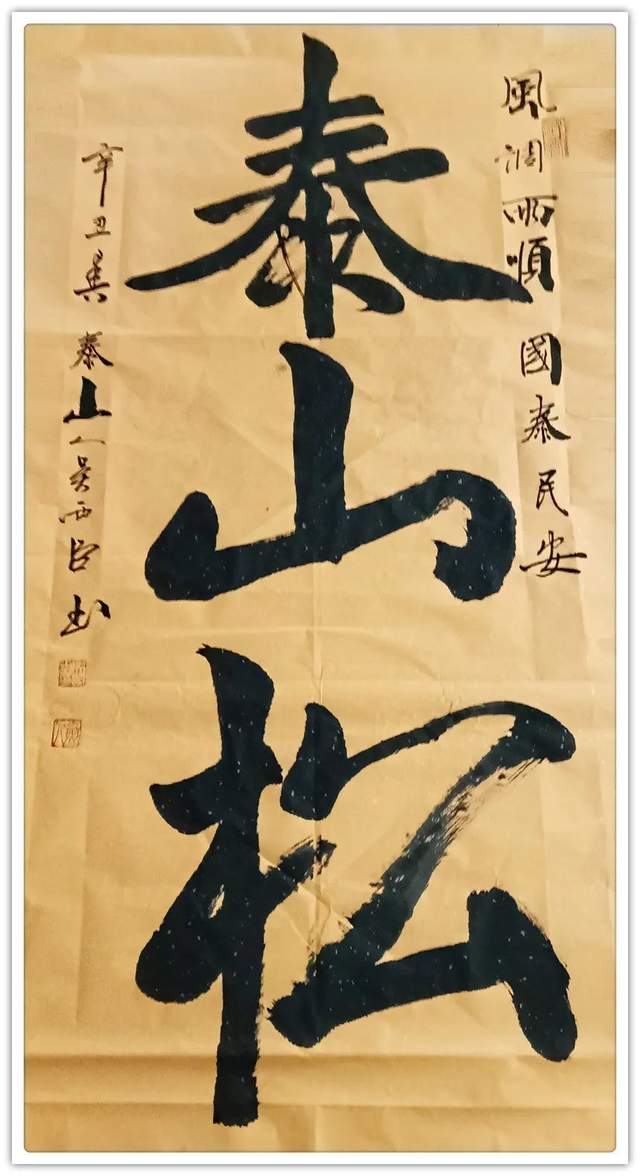 風調雨順 國泰民安
泰山松
辛丑 泰山人吴西臣书